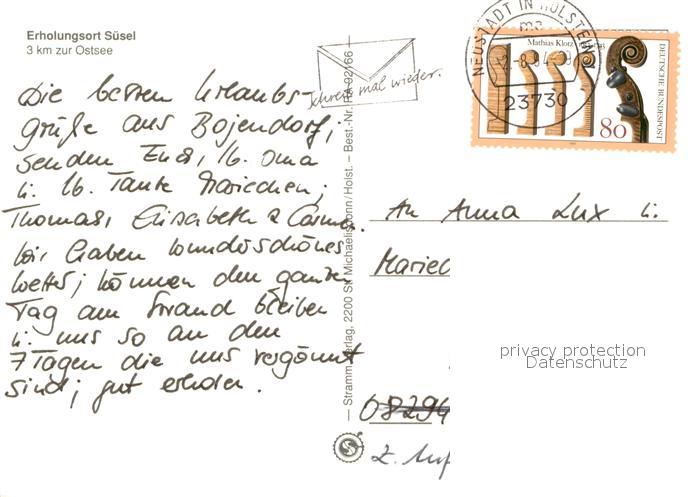 Erholungsort Süsel
3 km zur Ostsee
Die besten Urlaubs-
grüße aus Bojendorf,
senden Euch, lb. Oma
u. lb. Tante Mariechen,
Thomas, Elisabeth & Carmen.
Wir haben wunderschönes
Wetter, können den ganzen
Tag am Strand bleiben
u. uns so an den
7 Tagen die uns vergönnt
sind, gut erholen.
Schreib mal wieder.
— Stramm Verlag, 2200 St. Michaelisdonn/Holst. – Best.-Nr. RA 02166 –
NEUSTADT IN HOLSTEIN
ma
23730
Mathias Klotz
DEUTSCHE BUNDESPOST
80
An Anna Lux u.
Mariec
08294
privacy protection
Datenschutz